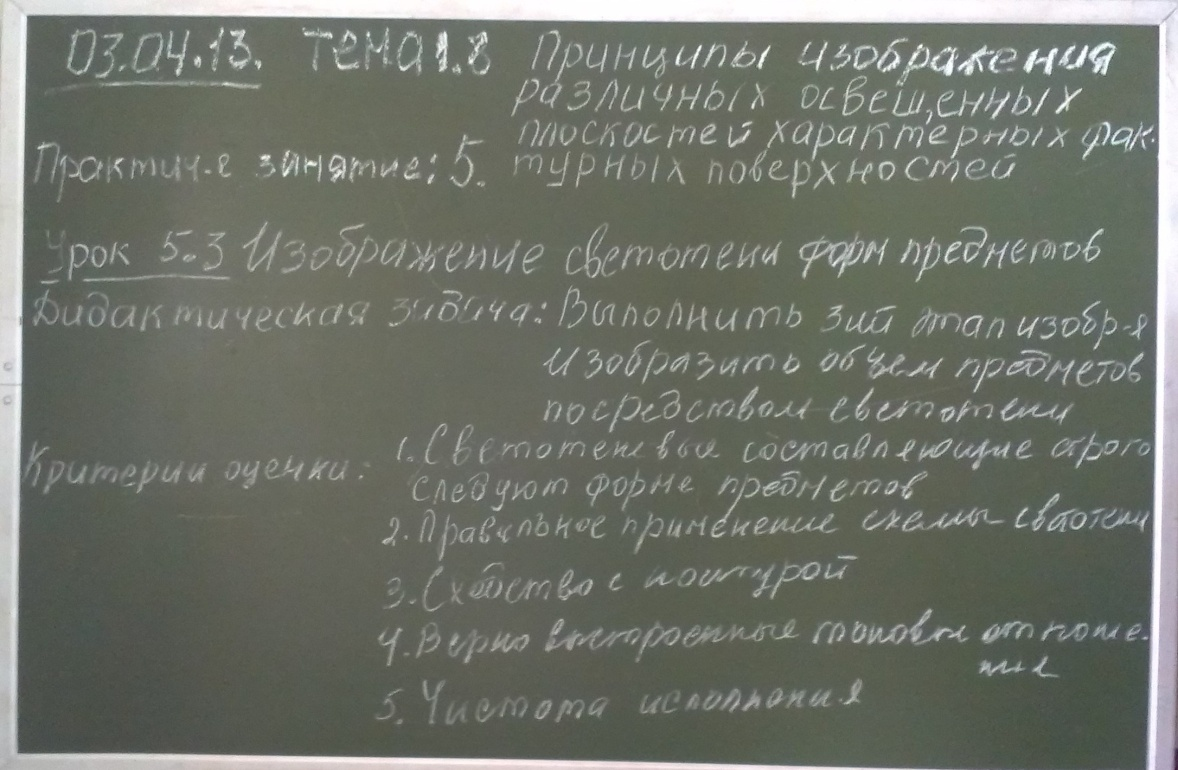 03.04.13. Тема 1.8 Принципы изображения
различных освещенных
плоскостей характерных фак-
Практич-е занятие: 5. турных поверхностей
Урок 5.3 Изображение светотени форм предметов
Дидактическая задача: Выполнить 3ий этап изобр-я
изобразить объем предметов
посредством светотени
Критерии оценки: 1. Светотеневые составляющие строго
следуют форме предметов
2. Правильное применение схемы светотени
3. Сходство с натурой
4. Верно выстроенные тоновые отноше-
ния
5. Чистота исполнения